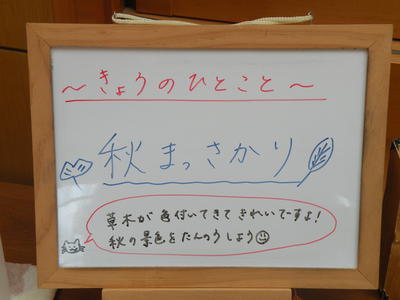 ～きょうのひとこと～
秋まっさかり
草木が色付いてきてきれいですよ!
秋の景色をたんのうしよう